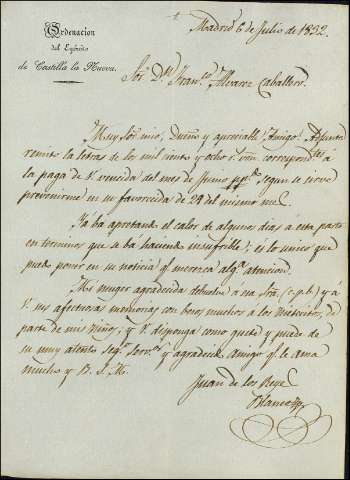 Madrid 6 de Julio de 1832.
Ordenacion
del Egército
de Castilla la Nueva.
Sor. Dn. Franco. Alvarez Caballero.
Muy Sor. mio, Dueño y apreciable Amigo: Adjunta
remito la letra de los mil ciento y ocho rs. von. correspondtes. á
la paga de V. vencida del mes de Junio segun se sirve
prevenirme en su favorecida de 29 del mismo mes.
Yá ba apretando el calor de algunos dias á esta parte
en terminos que se ba haciendo insufrible; es lo unico que
puedo poner en su noticia qe. merezca alga. atencion.
Mi muger agradecida debuelve á na. Sra. (c.p.b.) y á
V. mis afectuosas memorias con besos muchos á los Nietecitos, de
parte de mis Niños; y V. disponga como guste y puede de
su muy atento Segro. Servor. y agradecdo. Amigo qe. le ama
mucho y B. S. M.
Juan de los Reyes